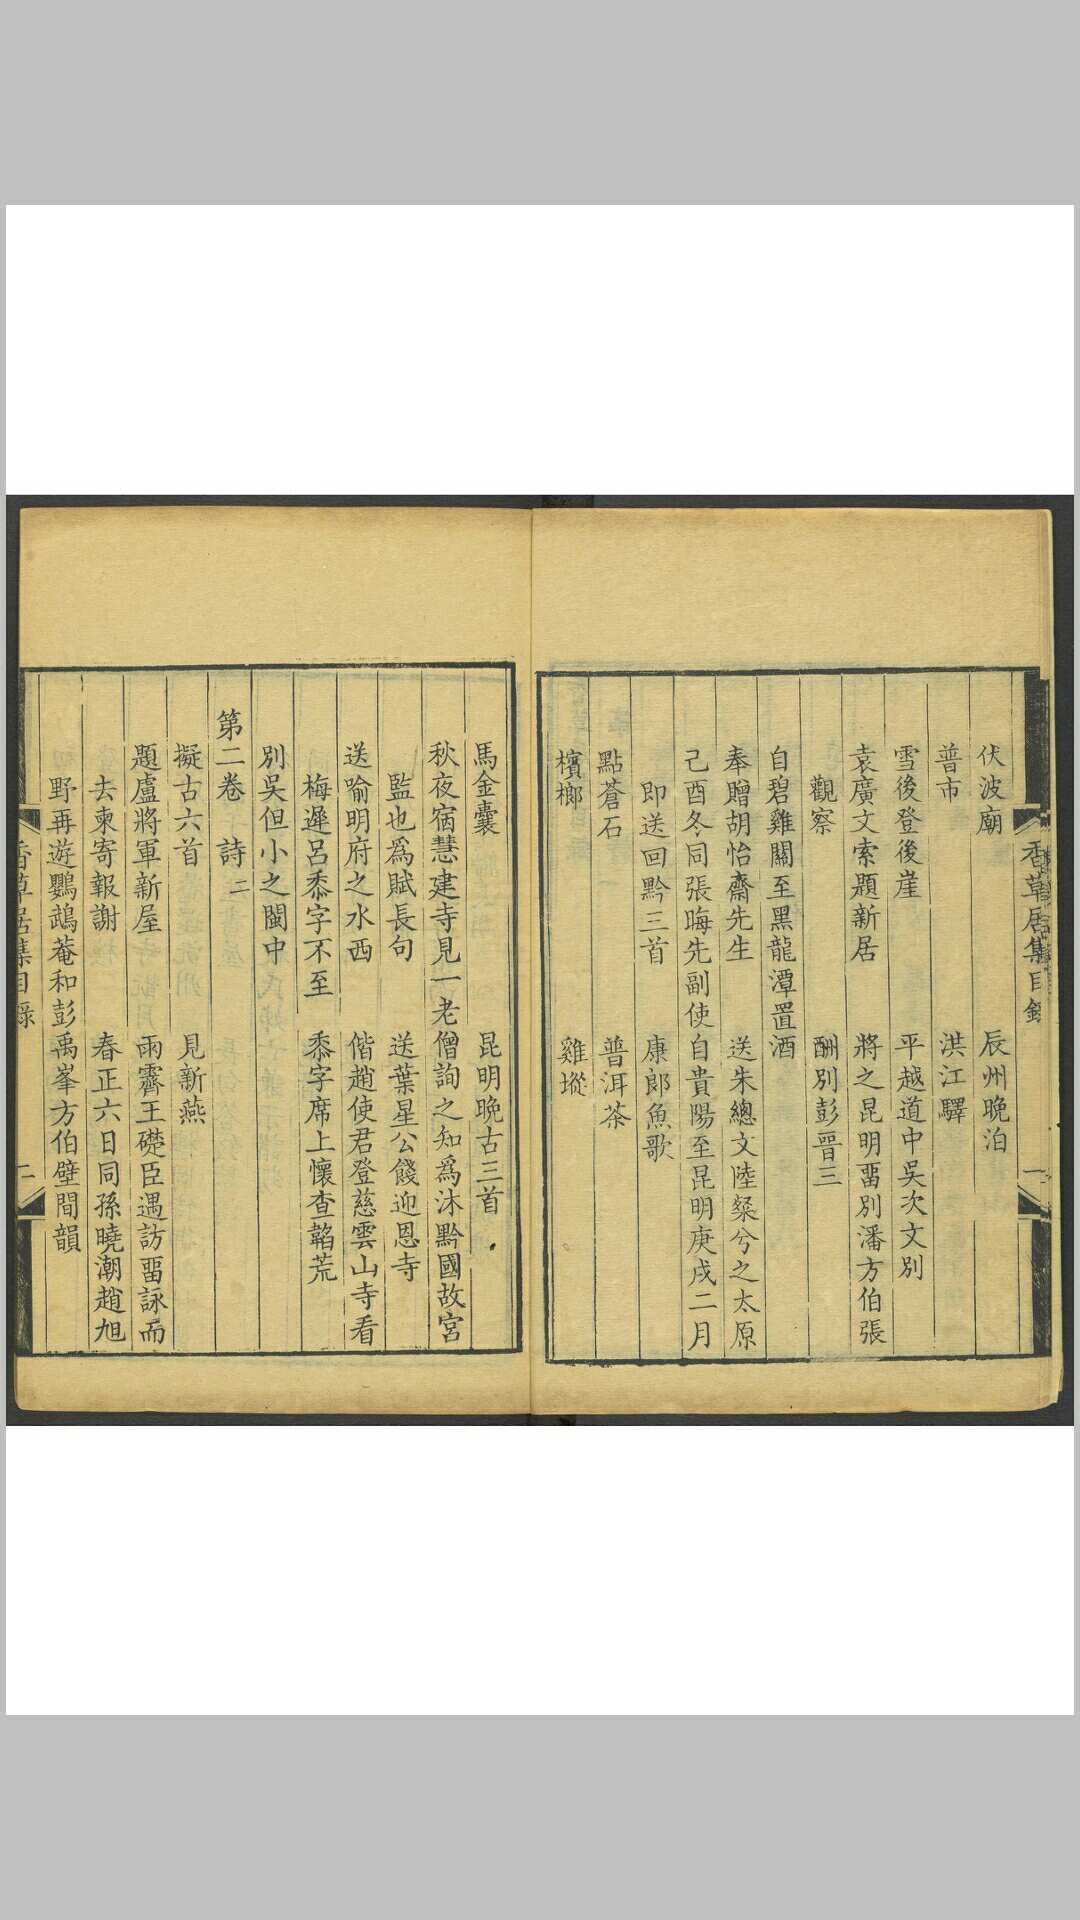 香草居集目錄 一
伏波廟 辰州晚泊
普市 洪江驛
雪後登後崖 平越道中吳次文別
袁廣文索題新居 將之昆明畱別潘方伯張
觀察 酬別彭晉三
自碧雞關至黑龍潭置酒
奉贈胡怡齋先生 送朱總文陸粲兮之太原
己酉冬同張晦先副使自貴陽至昆明庚戌二月
即送回黔三首 康郎魚歌
點蒼石 普洱茶
檳榔 雞㙡
馬金囊 昆明晚古三首
秋夜宿慧建寺見一老僧詢之知爲沐黔國故宮
監也爲賦長句 送葉星公餞迎恩寺
送喻明府之水西 偕趙使君登慈雲山寺看
梅遲呂黍字不至 黍字席上懷查韜荒
別吳但小之閩中
第二卷 詩二
擬古六首 見新燕
題盧將軍新屋 雨霽王礎臣過訪畱詠而
去柬寄報謝 春正六日同孫曉潮趙旭
野再遊鸚鵡菴和彭禹峯方伯壁間韻
香草居集目錄 二